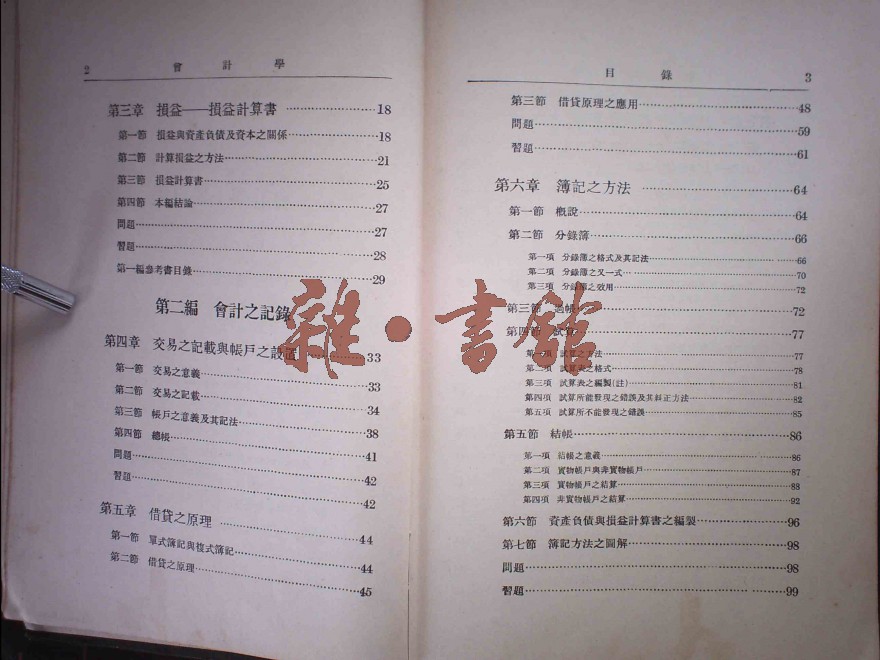 2 會計學
第三章 損益——損益計算書 ……18
第一節 損益與資產負債及資本之關係……18
第二節 計算損益之方法……21
第三節 損益計算書……25
第四節 本編結論……27
問題……27
習題……28
第一編參考書目錄……29
第二編 會計之記錄
第四章 交易之記載與帳戶之設置……33
第一節 交易之意義……33
第二節 交易之記載……34
第三節 帳戶之意義及其記法……38
第四節 總帳……41
問題……42
習題……42
第五章 借貸之原理……44
第一節 單式簿記與複式簿記……44
第二節 借貸之原理……45
目錄 3
第三節 借貸原理之應用……48
問題……59
習題……61
第六章 簿記之方法……64
第一節 概說……64
第二節 分錄簿……66
第一項 分錄簿之格式及其記法……66
第二項 分錄簿之又一式……70
第三項 分錄簿之效用……72
第三節 過帳……72
第四節 試算……77
第一項 試算之方法……77
第二項 試算表之格式……78
第三項 試算表之編製(註)……81
第四項 試算所能發現之錯誤及其糾正方法……82
第五項 試算所不能發現之錯誤……85
第五節 結帳……86
第一項 結帳之意義……86
第二項 實物帳戶與非實物帳戶……87
第三項 實物帳戶之結算……88
第四項 非實物帳戶之結算……92
第六節 資產負債與損益計算書之編製……96
第七節 簿記方法之圖解……98
問題……98
習題……99
雜·書舘